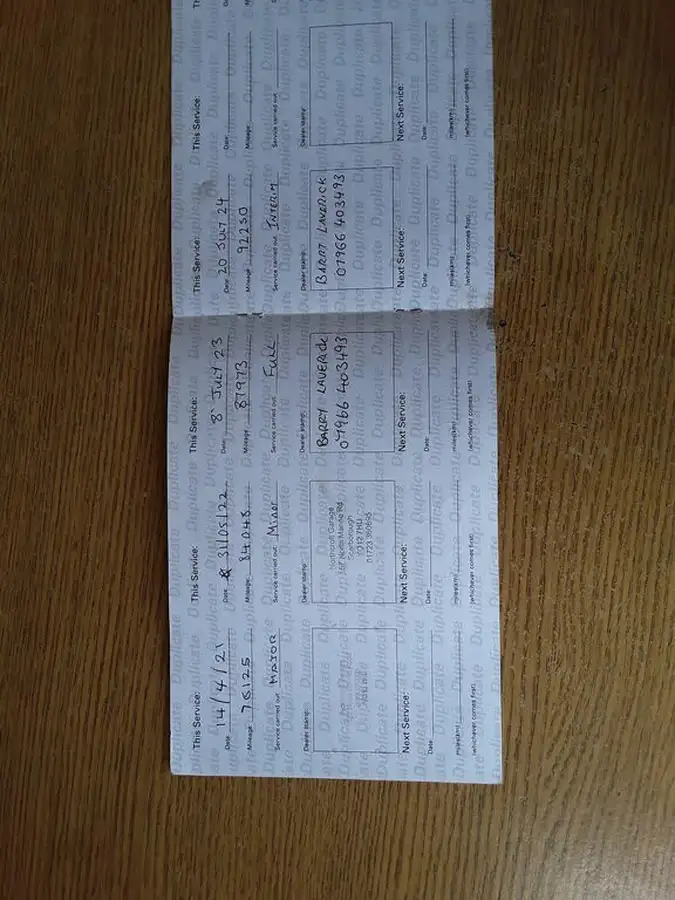 Duplicate
This Service:
Date 14/4/21
Mileage 76125
Service carried out: MAJOR
Dealer stamp:
Next Service:
Date:
miles(km)
(whichever comes first)
This Service:
Date 31/05/22
Mileage: 84048
Service carried out: Minor
Dealer stamp:
Northcroft Garage
North Marine Rd
Scarborough
YO12 7HU
01723 360695
Next Service:
Date:
miles(km)
(whichever comes first)
This Service:
Date: 8 JULY 23
Mileage 87973
Service carried out: FULL
Dealer stamp:
BARRY LAVERICK
07966 403493
Next Service:
Date:
miles(km)
(whichever comes first)
This Service:
Date: 20 JULY 24
Mileage: 92250
Service carried out: INTERIM
Dealer stamp:
BARRY LAVERICK
07966 403493
Next Service:
Date:
miles(km)
(whichever comes first)
This Service:
Date:
Mileage:
Service carried out:
Dealer stamp:
Next Service:
Date:
miles(km)
(whichever comes first)